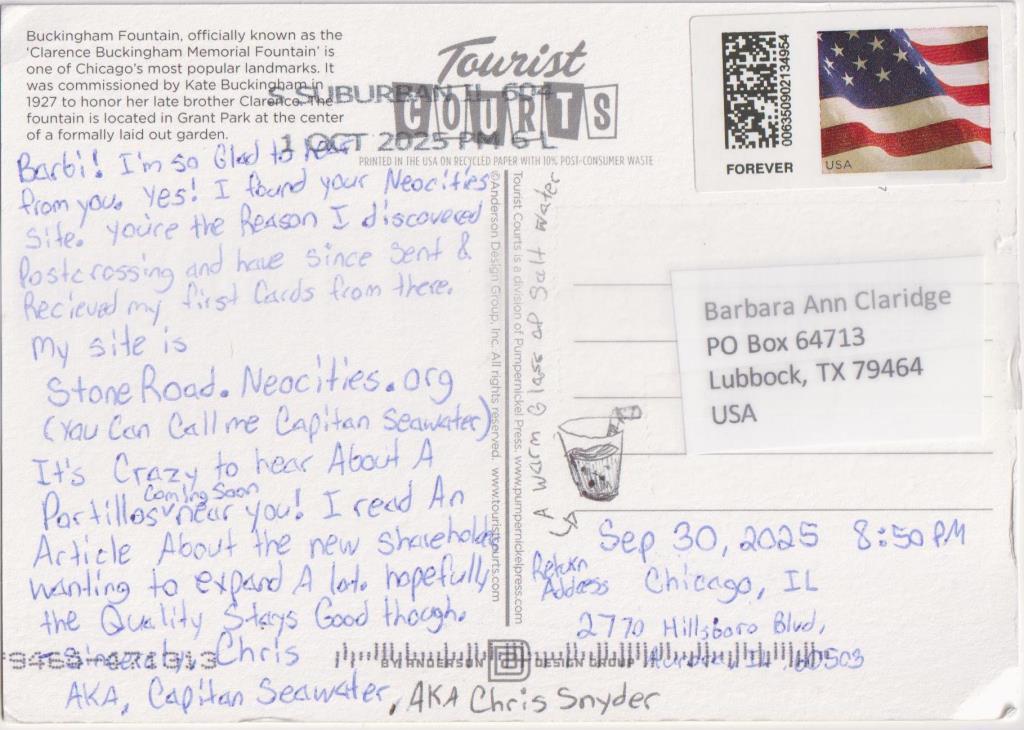 Buckingham Fountain, officially known as the
'Clarence Buckingham Memorial Fountain' is
one of Chicago's most popular landmarks. It
was commissioned by Kate Buckingham in
1927 to honor her late brother Clarence. The
fountain is located in Grant Park at the center
of a formally laid out garden.
Tourist
COURTS
S SUBURBAN IL 604
1 OCT 2025 PM 6 L
PRINTED IN THE USA ON RECYCLED PAPER WITH 10% POST-CONSUMER WASTE
0063509902134954
FOREVER
USA
Barbi! I'm so Glad to hear
from you. Yes! I found your Neocities
Site. You're the Reason I discovered
Postcrossing and have since Sent &
Recieved my first Cards from there.
My site is
StoneRoad.Neocities.org
(You Can Call me Capitan Seawater)
It's Crazy to hear About A
Portillos coming soon near you! I read An
Article About the new shareholder
wanting to expand A lot. hopefully
the Quality Stays Good though.
- Sincerely, Chris
AKA, Capitan Seawater, AKA Chris Snyder
©Anderson Design Group, Inc. All rights reserved. www.touristcourts.com
Tourist Courts is a division of Pumpernickel Press. www.pumpernickelpress.com
A warm Glass of Salt water
Barbara Ann Claridge
PO Box 64713
Lubbock, TX 79464
USA
Sep 30, 2025 8:50 PM
Return
Address
Chicago, IL
2770 Hillsboro Blvd,
Aurora, IL 60503
BY ANDERSON DESIGN GROUP